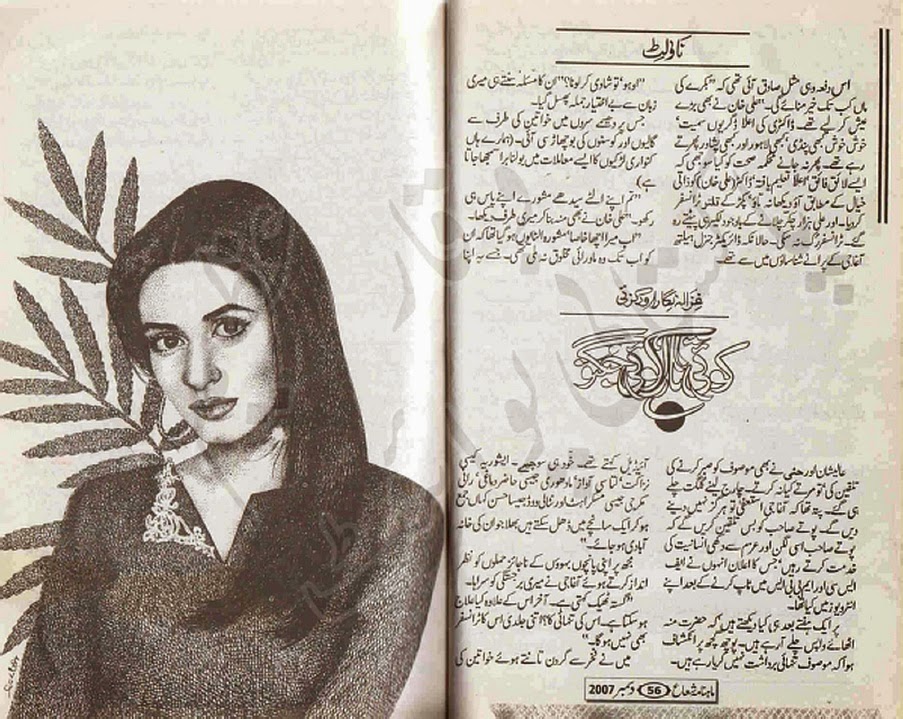 ناولٹ
اس دفعہ وہی مثل صادق آئی تھی کہ "بکرے کی
ماں کب تک خیر منائے گی۔" علی خان نے بھی بڑے
عیش کر لیے تھے۔ ڈاکٹری کی اعلا ڈگریوں سمیت'
خوش خوش کبھی پنڈی' کبھی لاہور اور کبھی پشاور پھرتے
رہے تھے۔ پھر نہ جانے محکمہ صحت کو کیا سوجھی کہ
ایسے لائق فائق' اعلا تعلیم یافتہ' ڈاکٹر (علی خان کو ذاتی
خیال کے مطابق آؤ دیکھا نہ تاؤ' پکڑ کے فٹافٹ ٹرانسفر
کر دیا۔ اور علی ہزار چکر چلانے کے باوجود لکیر ہی پیٹتے رہ
گئے۔ ٹرانسفر رک نہ سکی۔ حالانکہ ڈائریکٹر جنرل ہیلتھ
آغا جی کے پرانے شناساؤں میں سے تھے۔
"اوہو' تو شادی کر لو نا؟" ان کا مسئلہ سنتے ہی میری
زبان سے بے اختیار جملہ پھسل گیا۔
جس پر دھیمے سروں میں خواتین کی طرف سے
گالیوں اور کوسنوں کی بوچھاڑ سی آئی۔ (ہمارے ہاں
کنواری لڑکیوں کا ایسے معاملات میں بولنا برا سمجھا جاتا
ہے)
"تم اپنے الٹے سیدھے مشورے اپنے پاس ہی
رکھو۔" علی خان نے بھی منہ بنا کر میری طرف دیکھا۔
اب میرا اچھا خاصا مشورہ الٹا یوں ہو گیا تھا کہ ان
کو اب تک وہ ماورائی مخلوق نہ ملی تھی۔ جسے یہ اپنا
غزالہ نگار اورکزئی
کوئی تارا کوئی جگنو
عالیشان اور حفنی نے بھی موصوف کو صبر کرنے کی
تلقین کی' تو مرتے کیا نہ کرتے۔ چارج لینے گلگت چلے
ہی گئے۔ پتہ تھا کہ آغا جی استعفیٰ تو ہرگز نہیں دینے
دیں گے۔ پوتے صاحب کو بس تلقین کریں گے کہ
پوتے صاحب اسی لگن اور عزم سے دکھی انسانیت کی
خدمت کرتے رہیں' جس کا اعلان انہوں نے ایف
ایس سی اور ایم بی بی ایس میں ٹاپ کرنے کے بعد اپنے
انٹرویوز میں کیا تھا۔
پر ایک ہفتے بعد ہی کیا دیکھتے ہیں کہ حضرت منہ
اٹھائے واپس چلے آ رہے ہیں۔ پوچھ گچھ پر انکشاف
ہوا کہ موصوف تنہائی برداشت نہیں کر پا رہے ہیں۔
آئیڈیل کہتے تھے۔ خود ہی سوچیے۔ ایشوریہ کیسی
نزاکت' لتا سی آواز' مادھوری جیسی حاضر دماغی' رانی
مکھرجی جیسی مسکراہٹ اور نٹالی ووڈ جیسا حسن کہاں جمع
ہو کر ایک سانچے میں ڈھل سکتے ہیں بھلا جو ان کی خانہ
آبادی ہو جائے۔"
مجھ پر اپنی پانچوں بہوؤں کے ناجائز حملوں کو نظر
انداز کرتے ہوئے آغا جی نے میری برجستگی کو سراہا۔
"گستہ ٹھیک کہتی ہے۔ آخر اس کے علاوہ کیا علاج
ہو سکتا ہے۔ اس کی تنہائی کا؟ اتنی جلدی اس کا ٹرانسفر
بھی نہیں ہو گا۔"
میں نے فخر سے گردن تانتے ہوئے خواتین کی
ماہنامہ شعاع 56 دسمبر 2007